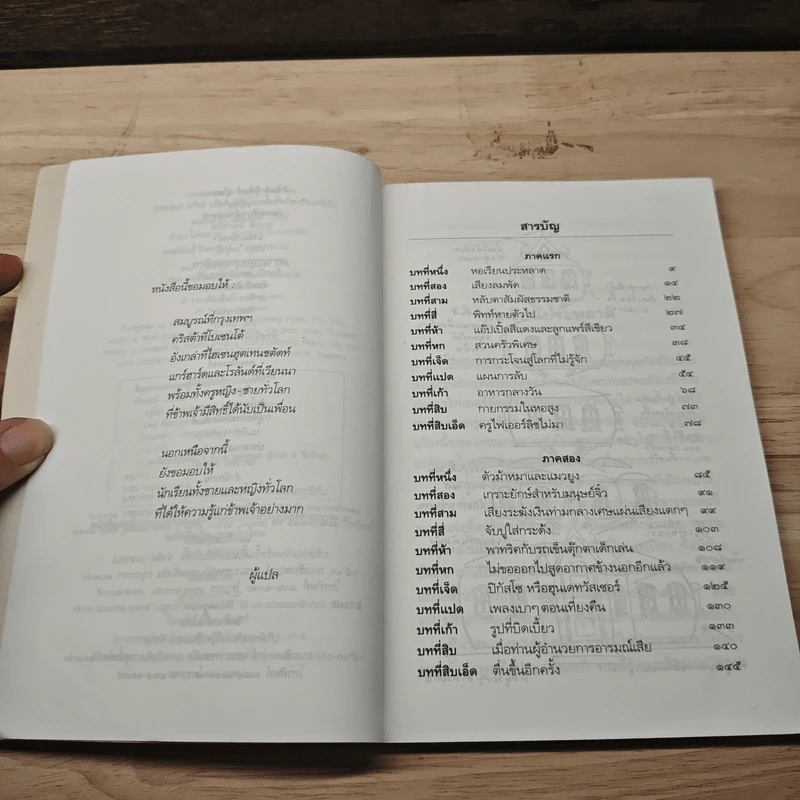 หนังสือนี้ขอมอบให้ :
สมบูรณ์ที่กรุงเทพฯ
คริสต้าที่โบเซนโต้
อังเกล่าที่ไฮเซนฮุตเทนชตัดท์
แกร์ฮาร์ดและโรลันด์ที่เวียนนา
พร้อมทั้งครูหญิง-ชายทั่วโลก
ที่ข้าพเจ้ามีสิทธิ์ได้นับเป็นเพื่อน
นอกเหนือจากนี้
ยังขอมอบให้
นักเรียนทั้งชายและหญิงทั่วโลก
ที่ได้ให้ความรู้แก่ข้าพเจ้าอย่างมาก
ผู้แปล
สารบัญ
ภาคแรก
บทที่หนึ่ง หอเรียนประหลาด ๙
บทที่สอง เสียงลมพัด ๑๔
บทที่สาม หลับตาสัมผัสธรรมชาติ ๒๒
บทที่สี่ พิทท์หายตัวไป ๒๗
บทที่ห้า แอ๊ปเปิ้ลสีแดงและลูกแพร์สีเขียว ๓๔
บทที่หก สวนครัวพิเศษ ๓๘
บทที่เจ็ด การกระโจนสู่โลกที่ไม่รู้จัก ๔๕
บทที่แปด แผนการลับ ๕๔
บทที่เก้า อาหารกลางวัน ๖๘
บทที่สิบ กายกรรมในหอสูง ๗๓
บทที่สิบเอ็ด ครูไฟเออร์ลิชไม่มา ๗๘
ภาคสอง
บทที่หนึ่ง ตัวม้าหมาและแมวยูง ๘๕
บทที่สอง เกราะยักษ์สำหรับมนุษย์จิ๋ว ๙๑
บทที่สาม เสียงระฆังเงินท่ามกลางเศษแผ่นเสียงแตกๆ ๙๙
บทที่สี่ จับปูใส่กระด้ง ๑๐๓
บทที่ห้า พาทริคกับรถเข็นตุ๊กตาเด็กเล่น ๑๐๘
บทที่หก ไม่ขอออกไปสูดอากาศข้างนอกอีกแล้ว ๑๑๙
บทที่เจ็ด ปิกัสโซ หรือฮุนเดทวัสเซอร์ ๑๒๕
บทที่แปด เพลงเบาๆ ตอนเที่ยงคืน ๑๓๐
บทที่เก้า รูปที่บิดเบี้ยว ๑๓๓
บทที่สิบ เมื่อท่านผู้อำนวยการอารมณ์เสีย ๑๔๐
บทที่สิบเอ็ด ตื่นขึ้นอีกครั้ง ๑๔๕